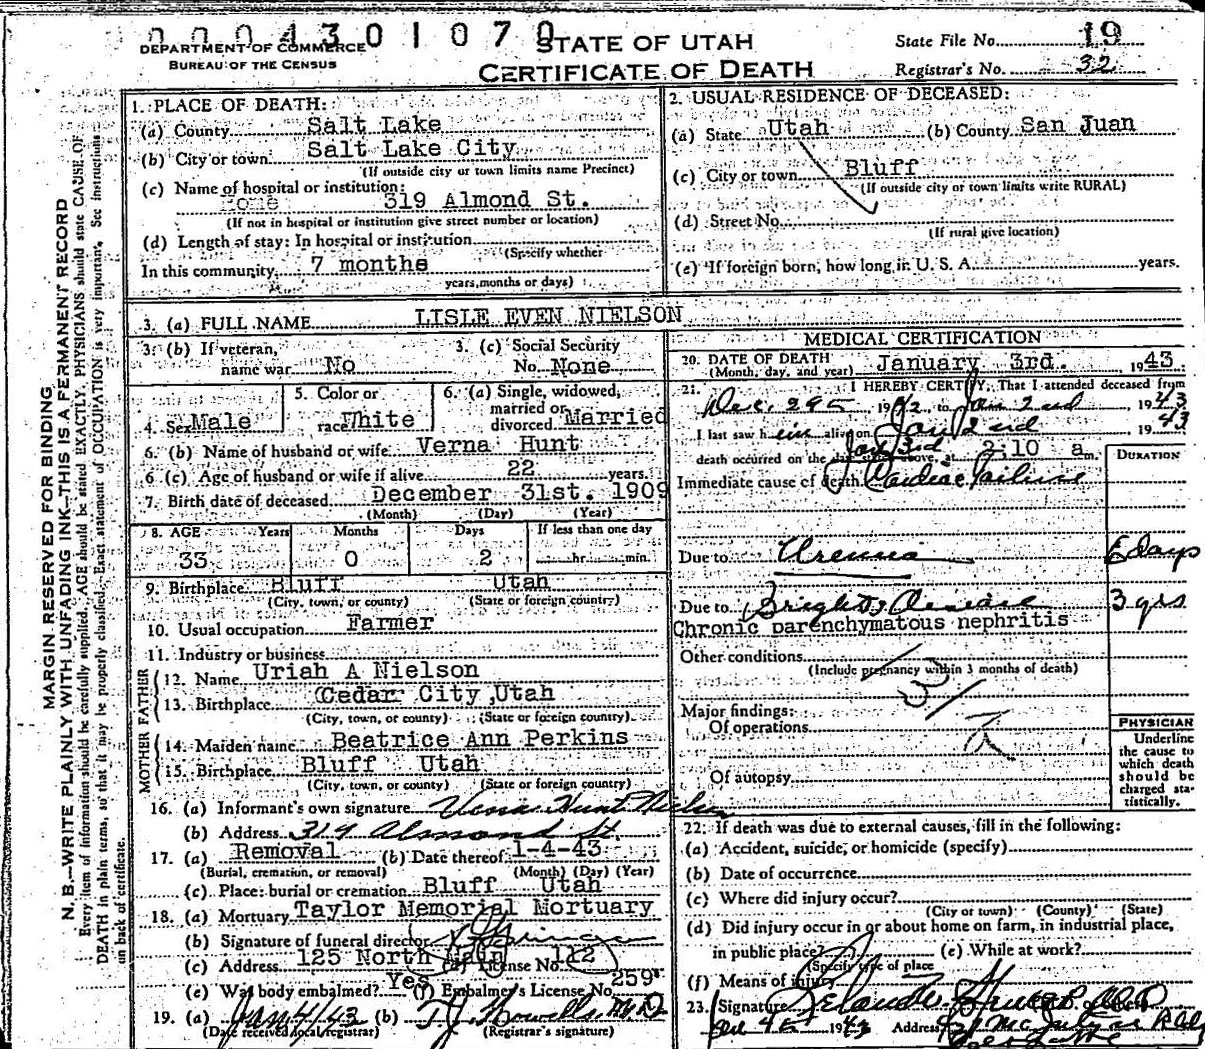 0004301070
DEPARTMENT OF COMMERCE
BUREAU OF THE CENSUS
STATE OF UTAH
CERTIFICATE OF DEATH
State File No. 19
Registrar's No. 32
MARGIN RESERVED FOR BINDING
N. B.—WRITE PLAINLY WITH UNFADING INK—THIS IS A PERMANENT RECORD
Every item of information should be carefully supplied. AGE should be stated EXACTLY. PHYSICIANS should state CAUSE OF
DEATH in plain terms, so that it may be properly classified. Exact statement of OCCUPATION is very important. See instructions
on back of certificate.
1. PLACE OF DEATH:
(a) County Salt Lake
(b) City or town Salt Lake City
(If outside city or town limits name Precinct)
(c) Name of hospital or institution:
319 Almond St.
(If not in hospital or institution give street number or location)
(d) Length of stay: In hospital or institution
(Specify whether
In this community 7 months
years, months or days)
2. USUAL RESIDENCE OF DECEASED:
(a) State Utah (b) County San Juan
(c) City or town Bluff
(If outside city or town limits write RURAL)
(d) Street No.
(If rural give location)
(e) If foreign born, how long in U. S. A. years.
3. (a) FULL NAME LISLE EVEN NIELSON
3. (b) If veteran, name war No
3. (c) Social Security No. None
4. Sex Male
5. Color or race White
6. (a) Single, widowed, married or divorced Married
6. (b) Name of husband or wife Verna Hunt
6 (c) Age of husband or wife if alive 22 years.
7. Birth date of deceased December 31st. 1909
(Month) (Day) (Year)
8. AGE Years Months Days If less than one day
33 0 2 hr. min.
9. Birthplace Bluff Utah
(City, town, or county) (State or foreign country)
10. Usual occupation Farmer
11. Industry or business
FATHER
12. Name Uriah A Nielson
13. Birthplace Cedar City Utah
(City, town, or county) (State or foreign country)
MOTHER
14. Maiden name Beatrice Ann Perkins
15. Birthplace Bluff Utah
(City, town, or county) (State or foreign country)
16. (a) Informant's own signature Verna Hunt
(b) Address 319 Almond St.
17. (a) Removal (b) Date thereof 1-4-43
(Burial, cremation, or removal) (Month) (Day) (Year)
(c) Place: burial or cremation Bluff Utah
18. (a) Mortuary Taylor Memorial Mortuary
(b) Signature of funeral director
(c) Address 125 North Main (d) License No. 112
(e) Was body embalmed? Yes (f) Embalmer's License No. 259
19. (a) Jan 4/43 (b) T.J. Howells M.D.
(Date received local registrar) (Registrar's signature)
MEDICAL CERTIFICATION
20. DATE OF DEATH January 3rd. 1943
(Month, day, and year)
21. I HEREBY CERTIFY, That I attended deceased from
Dec. 29 1942, to Jan 2nd, 1943
I last saw him alive on Jan 2nd 1943
death occurred on the date stated above, at 2:10 a m.
Jan 3rd
DURATION
Immediate cause of death Cardiac Failure
Due to Uremia 6 days
Due to Brights Disease 3 yrs
Chronic parenchymatous nephritis
Other conditions
(Include pregnancy within 3 months of death)
Major findings:
Of operations
Of autopsy
PHYSICIAN
Underline
the cause to
which death
should be
charged sta-
tistically.
22. If death was due to external causes, fill in the following:
(a) Accident, suicide, or homicide (specify)
(b) Date of occurrence
(c) Where did injury occur?
(City or town) (County) (State)
(d) Did injury occur in or about home on farm, in industrial place,
in public place? (e) While at work?
(Specify type of place
(f) Means of injury
23. Signature
1943 Address